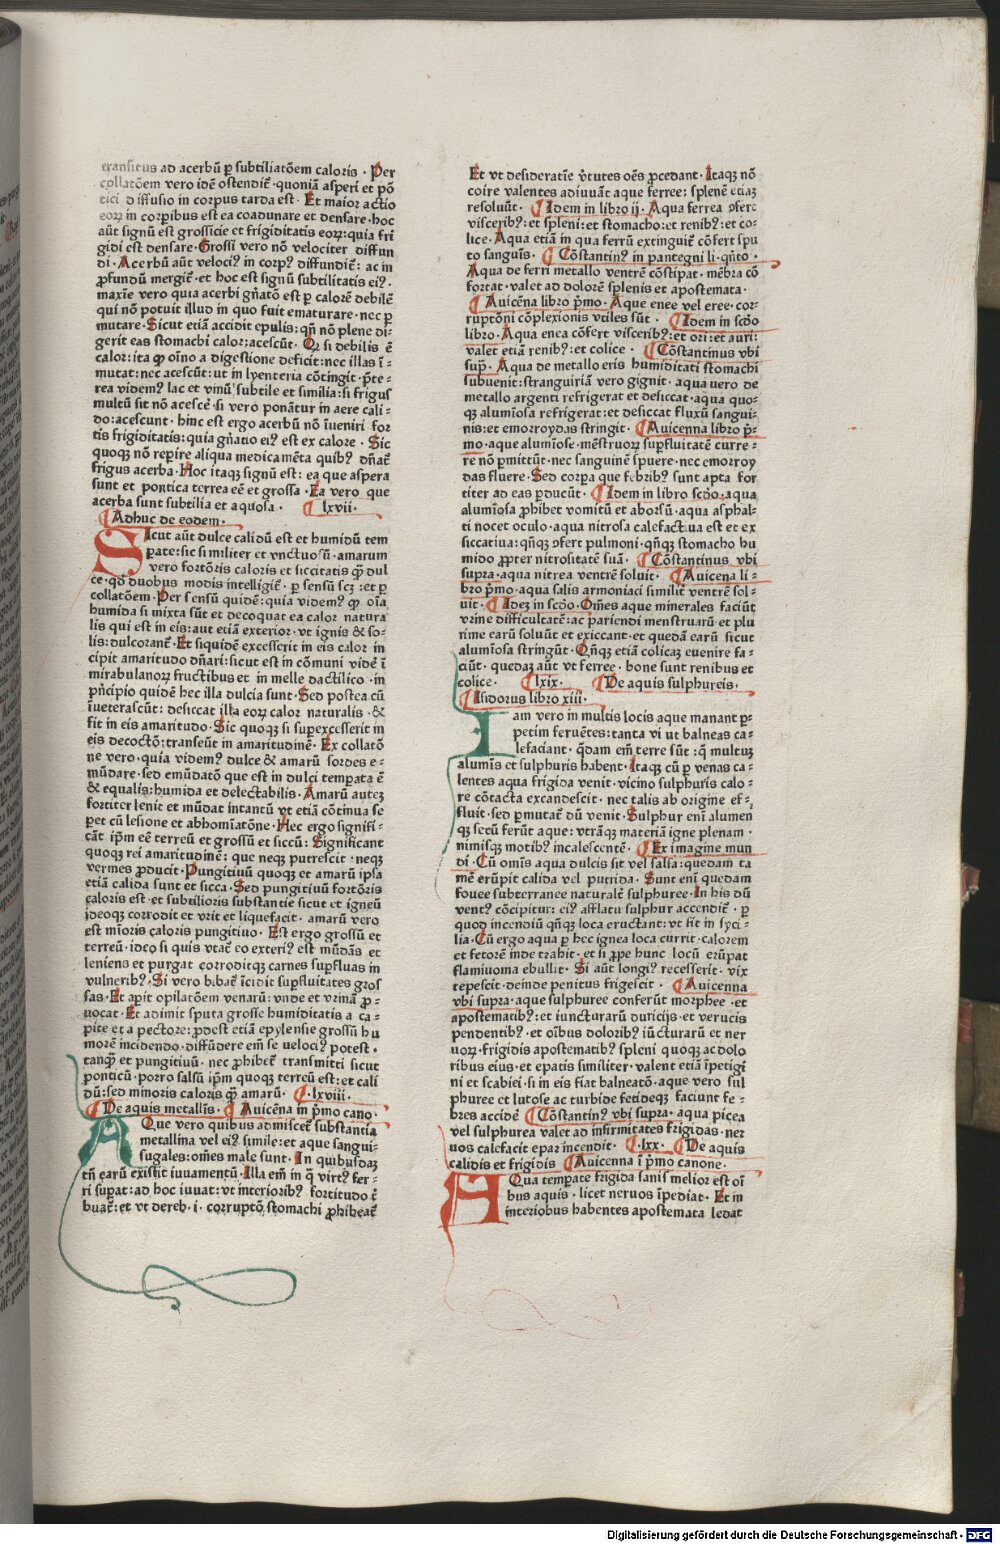 transitus ad acerbū ꝑ subtiliatōem caloris · Per
collatōem vero idē ostendit᷑ · quoniā asperi et pō
tici diffusio in corpus tarda est · Et maior actio
eoꝝ in corpibus est ea coadunare et densare · hoc
aūt signū est grossicie et frigiditatis eoꝝ: quia fri
gidi est densare · Grossi vero nō velociter diffun
di · Acerbū aūt velociꝰ in corpꝰ diffundit᷑: ac in
ꝓfundū mergit᷑ · et hoc est signū subtilitatis eiꝰ ·
maxīe vero quia acerbi gn̄atō est ꝑ calorē debilē
qui nō potuit illud in quo fuit ematurare · nec ꝑ
mutare · Sicut etiā accidit epulis: qn̄ nō plene di-
gerit eas stomachi calor; acescūt · Qr si debilis ē
calor: ita ꝙ oīno a digestione deficit: nec illas ī-
mutat: nec acescūt: ut in lyenteria cōtingit · p̄te-
rea videmꝰ lac et vinū subtile et similia: si frigus
multū sit nō acescē · si vero ponātur in aere cali-
do: acescunt · hinc est ergo acerbū nō īueniri for
tis frigiditatis: quia gn̄atio eiꝰ est ex calore · Sic
quoqꝫ nō reꝑire aliqua medicamēta quibꝰ dn̄at᷑
frigus acerba · Hoc itaqꝫ signū est: ea que aspera
sunt et pontica terrea eē et grossa · Ea vero que
acerba sunt subtilia et aquosa · ¶ lxvii ·
¶ Adhuc de eodem ·
SIcut aūt dulce calidū est et humidū tem
pate: sic similiter et vnctuosū · amarum
vero fortōris caloris et siccitatis qͣꝫ dul
ce · qd̄ duobus modis intelligit᷑ · ꝑ sensū scꝫ: et ꝑ
collatōem · Per sensū quidē: quia videmꝰ ꝙ oīa
humida si mixta sūt et decoquat ea calor natura
lis qui est in eis: aut etiā exterior · vt ignis & so-
lis: dulcorant᷑ · Et siquidē excesserit in eis calor in
cipit amaritudo dn̄ari: sicut est in cōmuni vidē ī
mirabulanoꝝ fructibus et in melle dactilico · in
pn̄cipio quidē hec illa dulcia sunt · Sed postea cū
īueterascūt: desiccat illa eoꝝ calor naturalis · &
fit in eis amaritudo · Sic quoqꝫ si suꝑexcesserit in
eis decoctō: transeūt in amaritudinē · Ex collatō
ne vero · quia videmꝰ dulce & amarū sordes e-
mūdare · sed emūdatō que est in dulci temꝑata ē
& equalis: humida et delectabilis · Amarū auteꝫ
fortiter lenit et mūdat intantū vt etiā cōtinua se
ꝑet cū lesione et abhomīatōne · Hec ergo signifi-
cāt ip̄m eē terreū et grossū et siccū: Significant
quoqꝫ rei amaritudinē: que neqꝫ putrescit · neqꝫ
vermes ꝓducit · Pungitiuū quoqꝫ et amarū ipsa
etiā calida sunt et sicca · Sed pungitiuū fortōris
caloris est · et subtilioris substantie sicut et igneū
ideoqꝫ corrodit et vrit et liquefacit · amarū vero
est mīoris caloris pungitiuo · Est ergo grossū et
terreū · ideo si quis vtat᷑ eo exteriꝰ est mūdās et
leniens et purgat corroditqꝫ carnes suꝑfluas in
vulneribꝰ · Si vero bibat᷑ īcidit suꝑfluitates gros
sas · Et aꝑit opilatōem venarū: vnde et vrinā ꝓ-
uocat · Et adimit sputa grosse humiditatis a ca-
pite et a pectore: ꝓdest etiā epylensie grossū hu
morē incidendo · diffūdere em̄ se velociꝰ potest ·
tanqͣꝫ et pungitiuū · nec ꝓhibet᷑ transmitti sicut
ponticū · porro salsū ip̄m quoqꝫ terreū est: et cali
dū: sed minoris caloris qͣꝫ amarū · ¶ lxviii ·
¶ De aquis metallīs · ¶ Auicēna in p̄mo cano ·
AQue vero quibus admiscet᷑ substantia
metallina vel eiꝰ simile: et aque sangui-
sugales: om̄es male sunt · In quibusdaꝫ
tn̄ earū existit iuuamentū · Illa em̄ in q̄ virtꝰ fer-
ri suꝑat: ad hoc iuuat: vt interioribꝰ fortitudo t᷑
buat᷑: et vt dereb · i · corruptō stomachi ꝓhibeat᷑
Et vt desideratīe v̓tutes oēs ꝓcedant · Itaqꝫ nō
coire valentes adiuuāt aque ferree: splenē etiaꝫ
resoluūt · ¶ Idem in libro ij · Aqua ferrea ꝯfert
visceribꝰ: et spleni: et stomacho: et renibꝰ: et co-
lice · Aqua etiā in qua ferrū extinguit᷑ cōfert spu
to sanguīs · ¶ Cōstantinꝰ in pantegni li · qͥnto ·
Aqua de ferri metallo ventrē cōstipat · mēbra cō
fortat · valet ad dolorē splenis et apostemata ·
¶ Auicēna libro p̄mo · Aque enee vel eree · cor-
ruptōni cōplexionis vtiles sūt · ¶ Idem in scd̄o
libro · Aqua enea cōfert visceribꝰ: et ori: et auri:
valet etiā renibꝰ: et colice · ¶ Cōstantinus vbi
supͣ · Aqua de metallo eris humiditati stomachi
subuenit: stranguiriā vero gignit · aqua uero de
metallo argenti refrigerat et desiccat · aqua quo-
qꝫ alumīosa refrigerat: et desiccat fluxū sangui-
nis: et emorroydas stringit · ¶ Auicenna libro p̄-
mo · aque alumīose · mēstruoꝝ suꝑfluitatē curre-
re nō ꝑmittūt · nec sanguinē spuere · nec emorroy
das fluere · Sed corꝑa que febribꝰ sunt apta for
titer ad eas ꝑducūt · ¶ Idem in libro scd̄o: aqua
alumīosa ꝓhibet vomitū et aborsū · aqua asphal-
ti nocet oculo · aqua nitrosa calefactiua est et ex
siccatiua: qn̄qꝫ ꝯfert pulmoni · qn̄qꝫ stomacho hu
mido ꝓpter nitrositatē suā · ¶ Cōstantinus vbi
supra · aqua nitrea ventrē soluit · ¶ Auicena li-
bro p̄mo · aqua salis armoniaci similit᷑ ventrē sol-
uit · ¶ Ideꝫ in scd̄o · Om̄es aque minerales faciūt
vrine difficultatē: ac pariendi menstruarū et plu
rime earū soluūt et exiccant · et quedā earū sicut
alumīosa stringūt · Qn̄qꝫ etiā colicaꝫ euenire fa-
ciūt · quedaꝫ aūt vt ferree · bone sunt renibus et
colice · ¶ lxix · ¶ De aquis sulphureis ·
¶ Isidorus libro xiii ·
Iam vero in multis locis aque manant ꝑ-
petim feruētes: tanta vi ut balneas ca-
lefaciant · qͣdam em̄ terre sūt: q̄ multuꝫ
alumīs et sulphuris habent · Itaqꝫ cū ꝑ venas ca-
lentes aqua frigida venit · vicino sulphuris calo-
re cōtacta excandescit · nec talis ab origine ef-
fluit · sed ꝑmutat᷑ dū venit · Sulphur eni᷑ alumen
qꝫ secū ferūt aque: vtrāqꝫ materiā igne plenam ·
nimisqꝫ motibꝰ incalescentē · ¶ Ex imagine mun
di · Cū omīs aqua dulcis sit vel salsa: quedam ta
mē erūpit calida vel putrida · Sunt eni᷑ quedam
fouee subterranee naturalē sulphuree · In his dū
ventꝰ cōcipitur: eiꝰ afflatu sulphur accendit᷑ · ꝑ
quod incendiū qn̄qꝫ loca eructant: vt fit in syci-
lia · Cū ergo aqua ꝑ hec ignea loca currit · calorem
et fetorē inde trahit · et si ꝓpe hunc locū erūpat
flamiuoma ebullit · Si aūt longiꝰ recesserit · vix
tepescit · deinde penitus frigescit · ¶ Auicenna
vbi supra · aque sulphuree conferūt morphee · et
apostematibꝰ: et iuncturarū duricijs · et verucis
pendentibꝰ · et oībus doloribꝰ iūcturarū et ner
uoꝝ · frigidis apostematibꝰ spleni quoqꝫ ac dolo
ribus eius · et epatis similiter · valent etiā īpetigi
ni et scabiei · si in eis fiat balneatō · aque vero sul
phuree et lutose ac turbide fetideqꝫ faciunt fe-
bres accidē ¶ Cōstantinꝰ vbi supra · aqua picea
vel sulphurea valet ad infirmitates frigidas · ner
uos calefacit epar incendit · ¶ lxx · ¶ De aquis
calidis et frigidis ¶ Auicenna ī p̄mo canone ·
AQua temꝑate frigida sanis melior est oī
bus aquis · licet neruos īpediat · Et in
interiobus habentes apostemata ledat
Digitalisierung gefördert durch die Deutsche Forschungsgemeinschaft - DFG